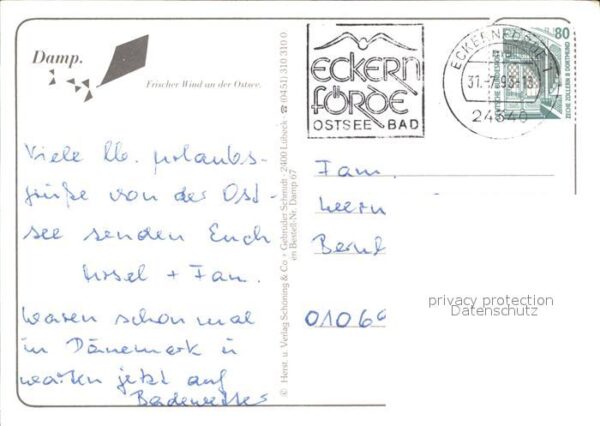 Damp.
Frischer Wind an der Ostsee.
Viele lb. Urlaubs-
grüße von der Ost-
see senden Euch
Ursel + Fam.
Waren schon mal
in Dänemark u
warten jetzt auf
Badewetter
© Herst. u. Verlag Schöning & Co · Gebrüder Schmidt · 2400 Lübeck · ☎ (0451) 310 310 0
Bestell-Nr. Damp 67
ECKERN
FÖRDE
OSTSEE BAD
ECKERNFÖRDE
31.-7.93-18
24340
80
DEUTSCHE BUNDESPOST
ZECHE ZOLLERN II DORTMUND
Fam.
Bernd
0106
privacy protection
Datenschutz